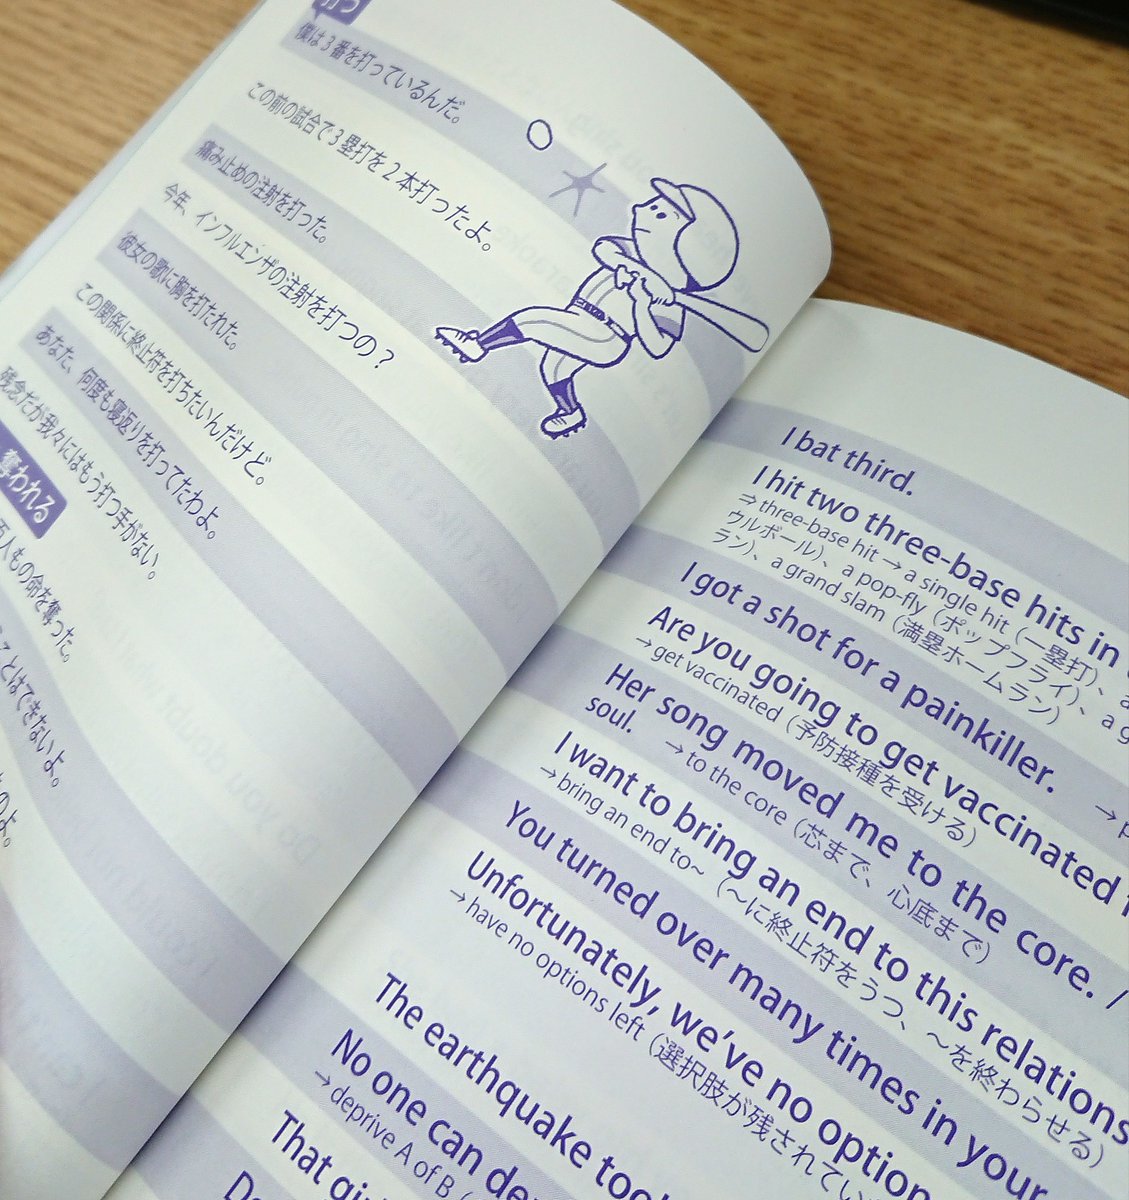 打つ
僕は3番を打っているんだ。
この前の試合で3塁打を2本打ったよ。
痛み止めの注射を打った。
今年、インフルエンザの注射を打つの？
彼女の歌に胸を打たれた。
この関係に終止符を打ちたいんだけど。
あなた、何度も寝返りを打ってたわよ。
残念だが我々にはもう打つ手がない。
奪われる
万人もの命を奪った。
ことはできないよ。
のよ。
I bat third.
I hit two three-base hits in
⇒ three-base hit → a single hit（一塁打）、a
ウルボール）、a pop-fly（ポップフライ）、a g
ラン）、a grand slam（満塁ホームラン）
I got a shot for a painkiller.
Are you going to get vaccinated
→get vaccinated（予防接種を受ける）
Her song moved me to the core. /
soul. →to the core（芯まで、心底まで）
I want to bring an end to this relations
→bring an end to~（〜に終止符をうつ、〜を終わらせる）
You turned over many times in your
Unfortunately, we've no option
→have no options left（選択肢が残されてい
The earthquake too
No one can de
→ deprive A of B（
That gi